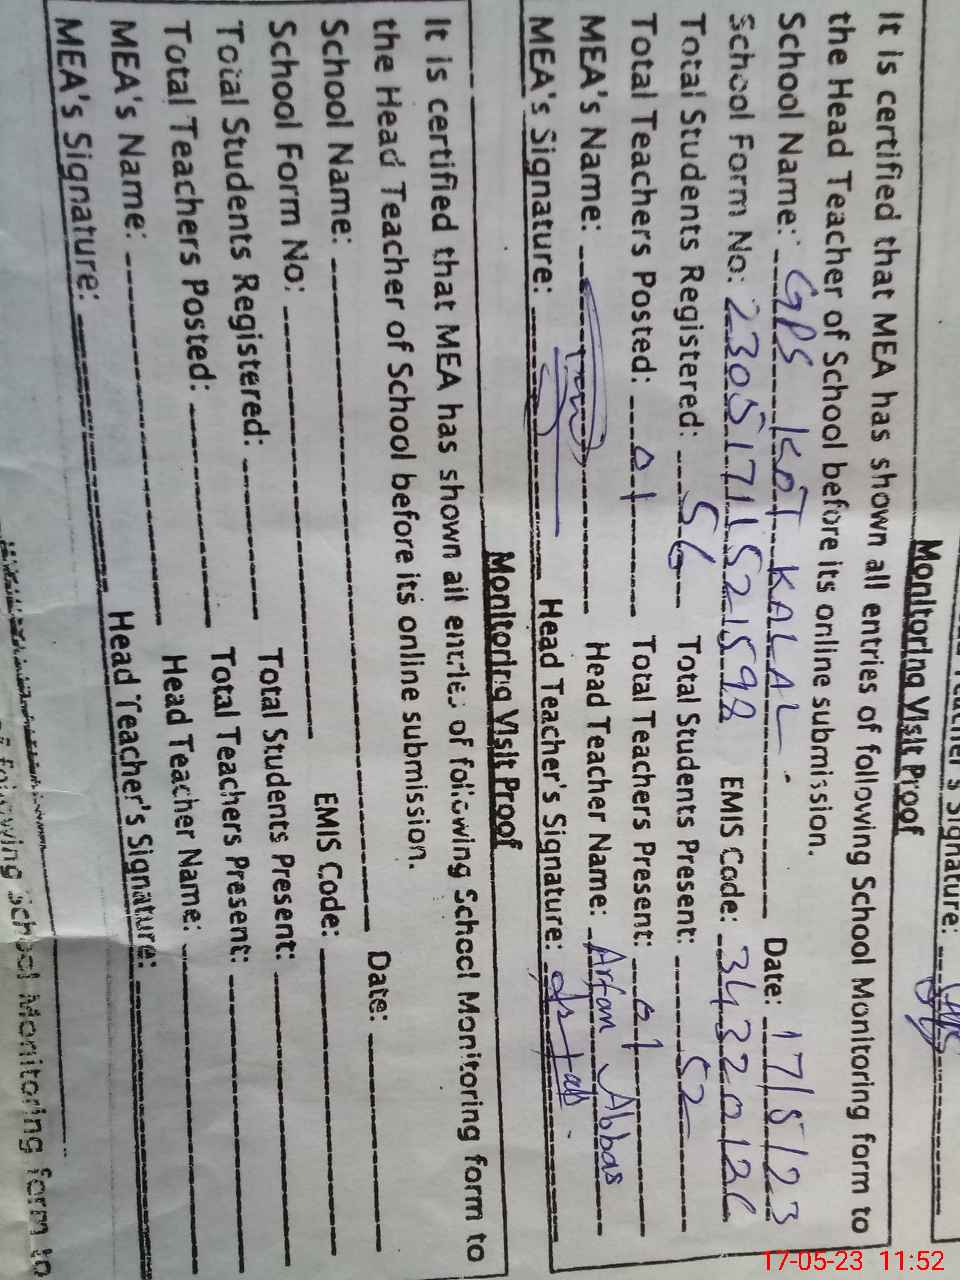 Signature:
Monitoring Visit Proof
It is certified that MEA has shown all entries of following School Monitoring form to
the Head Teacher of School before its online submission.
School Name: GPS KOT KALAL Date: 17/5/23
School Form No: 23051711521598 EMIS Code:
Total Students Registered: 56 Total Students Present: 52
Total Teachers Posted: 01 Total Teachers Present: 01
MEA's Name: Head Teacher Name: Arfan Abbas
MEA's Signature: Head Teacher's Signature:
Monitoring Visit Proof
It is certified that MEA has shown all entries of following School Monitoring form to
the Head Teacher of School before its online submission.
School Name: Date:
School Form No: EMIS Code:
Total Students Registered: Total Students Present:
Total Teachers Posted: Total Teachers Present:
MEA's Name: Head Teacher Name:
MEA's Signature: Head Teacher's Signature:
of following School Monitoring form to
17-05-23 11:52